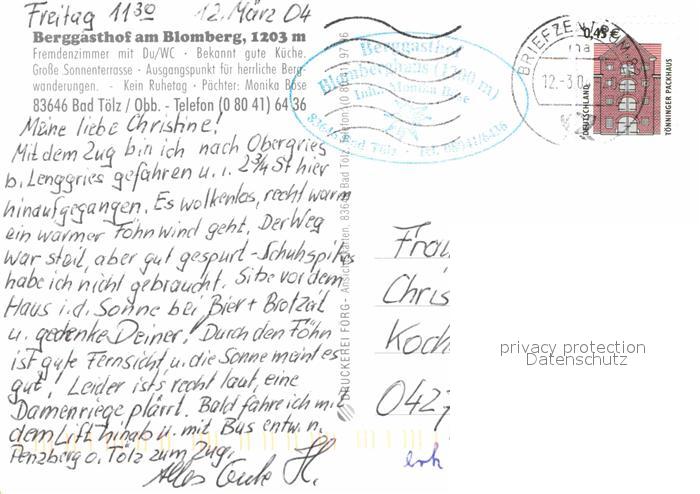 Freitag 11³⁰ 12. März 04
Berggasthof am Blomberg, 1203 m
Fremdenzimmer mit Du/WC · Bekannt gute Küche.
Große Sonnenterrasse · Ausgangspunkt für herrliche Berg-
wanderungen. - Kein Ruhetag · Pächter: Monika Böse
83646 Bad Tölz / Obb. - Telefon (0 80 41) 64 36
Meine liebe Christine!
Mit dem Zug bin ich nach Obergries
b. Lenggries gefahren u. i. 2¾ St hier
hinaufgegangen. Es wolkenlos, recht warm
ein warmer Föhnwind geht. Der Weg
war steil, aber gut gespurt - Schuhspikes
habe ich nicht gebraucht. Sitze vor dem
Haus i. d. Sonne bei Bier + Brotzeit
u. gedenke Deiner! Durch den Föhn
ist gute Fernsicht u. die Sonne meint es
gut! Leider ist's recht laut, eine
Damenriege plärrt. Bald fahre ich mit
dem Lift hinab u. mit Bus entw. n.
Penzberg o. Tölz zum Zug.
Alles Gute H.
Berggasthof
Blomberghaus (1200 m)
Inh. Monika Böse
83646 Bad Tölz · Tel. 08041/6436
DRUCKEREI FORG - Ansichtskarten, 83646 Bad Tölz, Telefon (0 80 41) 97 66
BRIEFZENTRUM 8
12.-3.0
0,45 €
DEUTSCHLAND
TÖNNINGER PACKHAUS
Frau
Chris
Koch
0427
privacy protection
Datenschutz